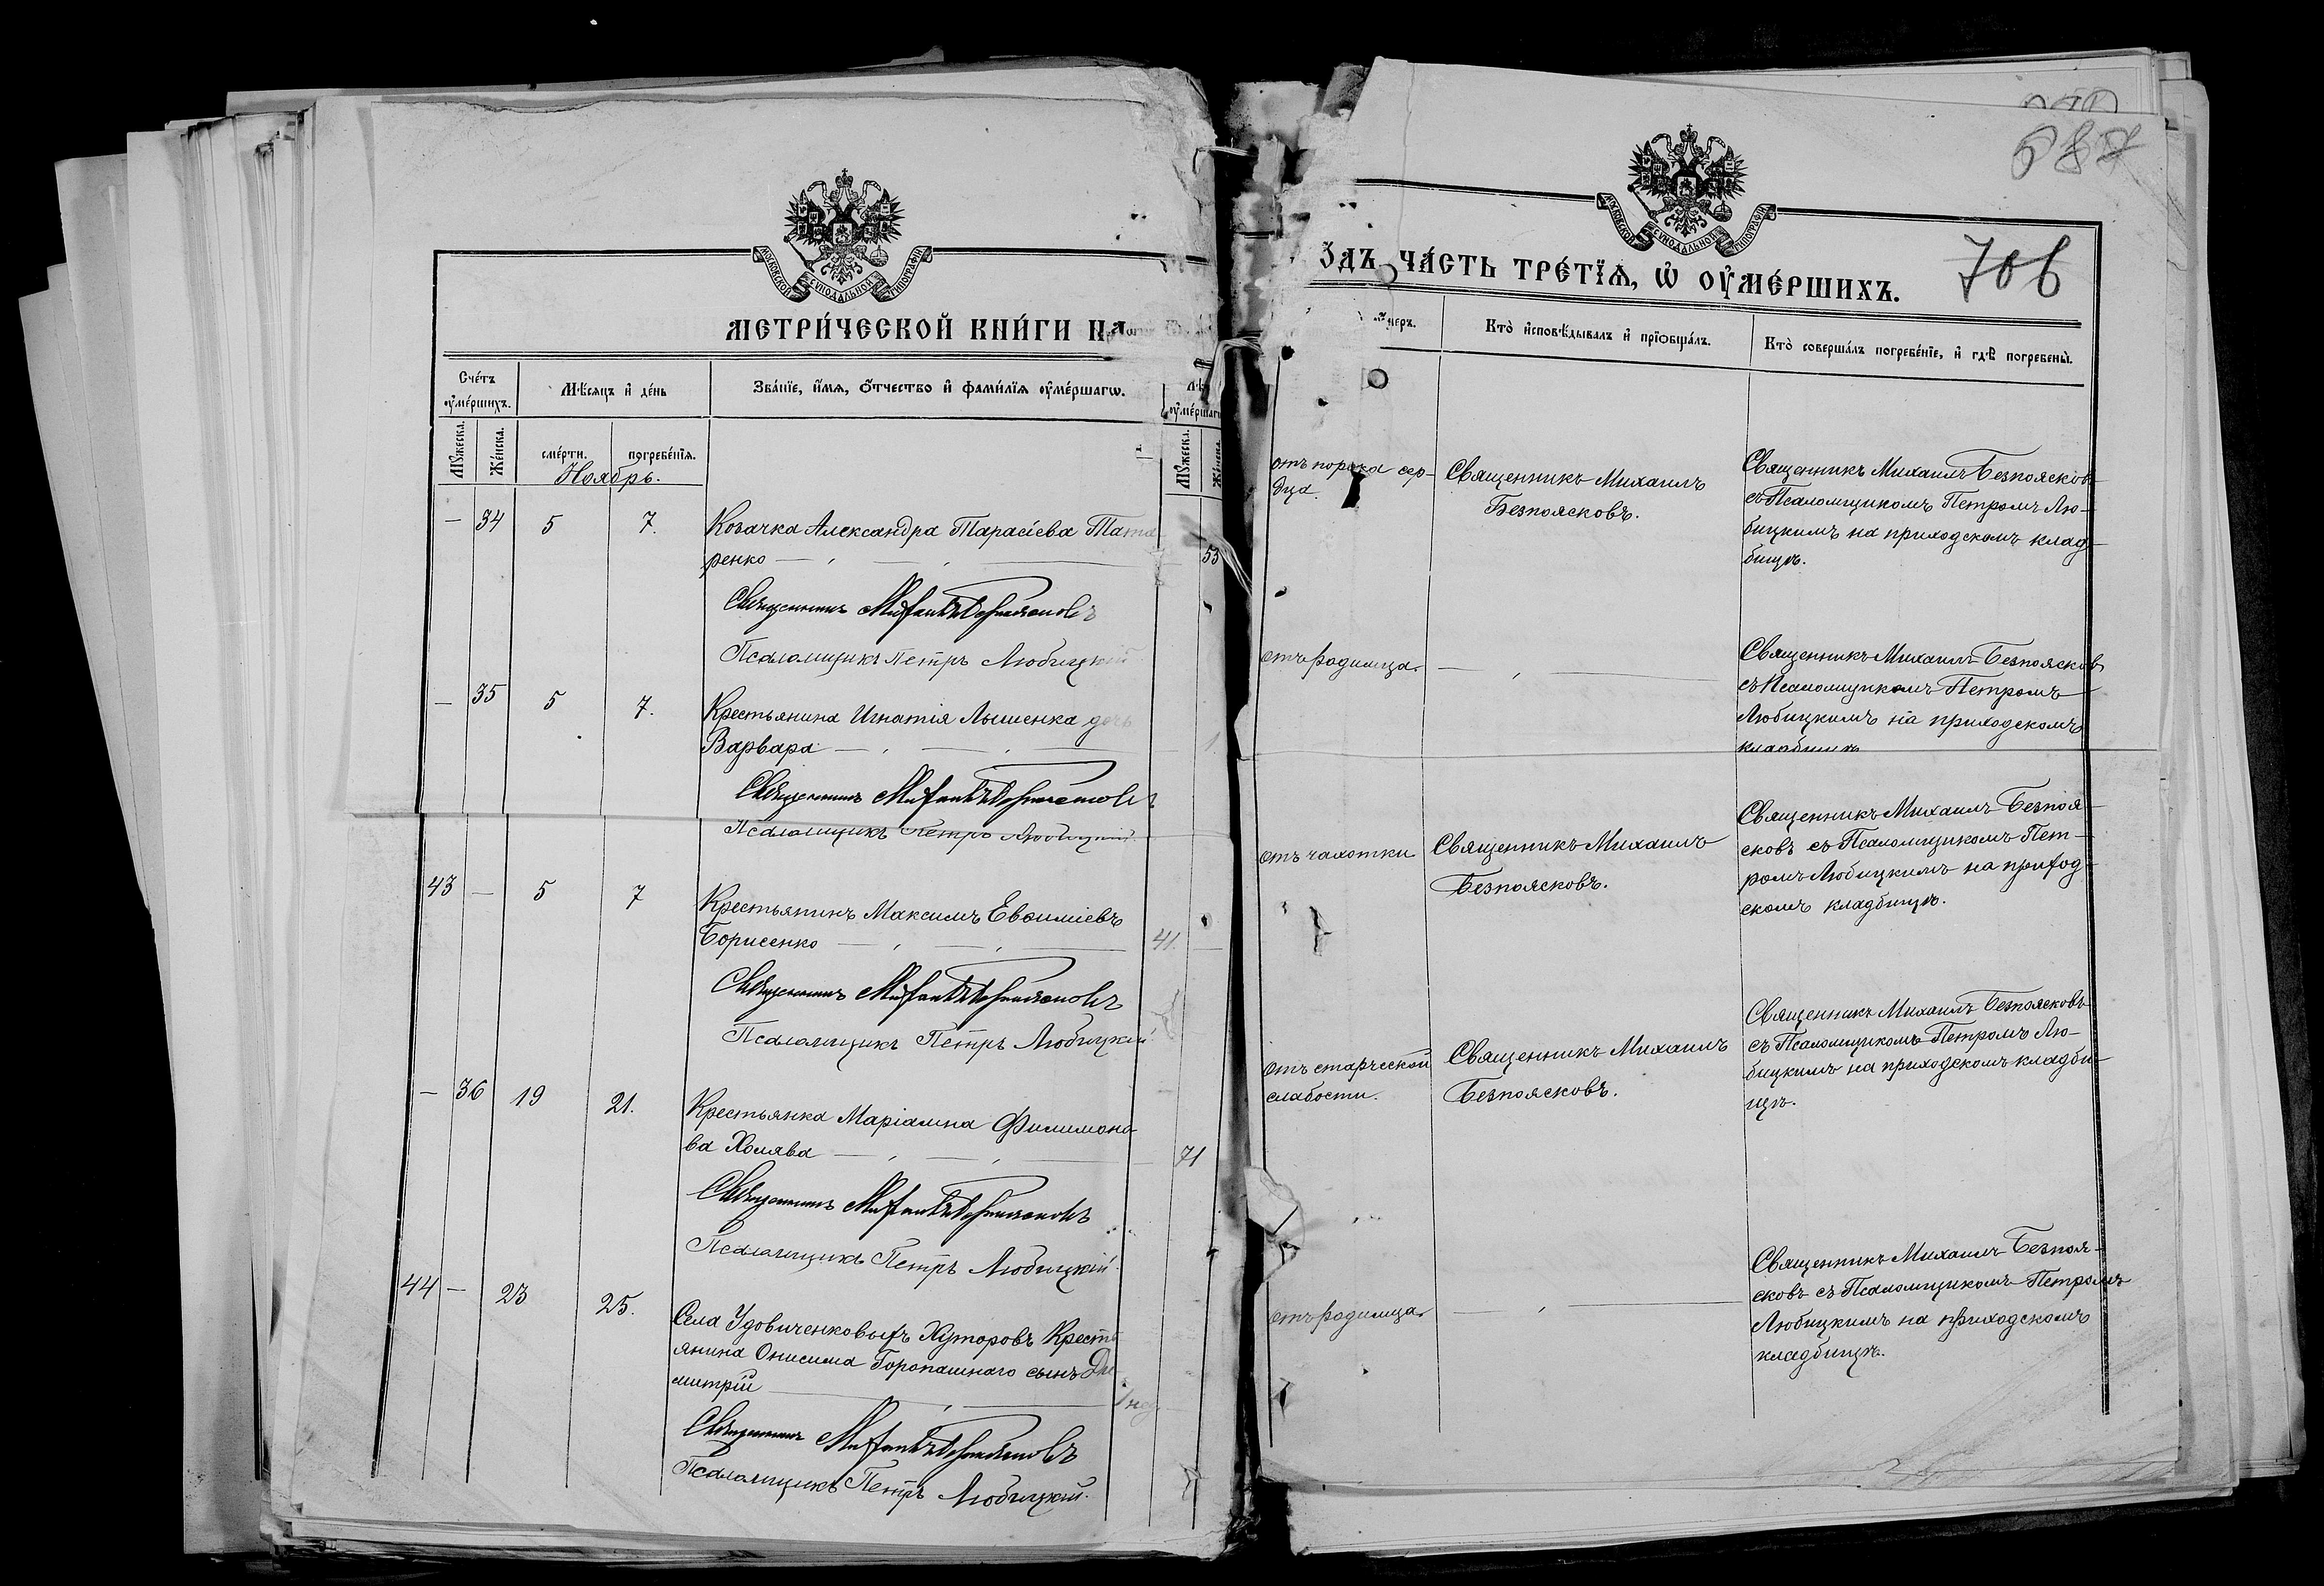 687
706
МОСКОВСКОЙ СѴНОДАЛЬНОЙ ТИПОГРАФІИ
МЕТРИ́ЧЕСКОЙ КНИ́ГИ НА
Сче́тъ ᲂу҆ме́ршихъ.
Мѣ́сяцъ и҆ де́нь
Зва́нїе, и҆́мѧ, ѻ҆́тчество и҆ фами́лїѧ ᲂу҆ме́ршагѡ.
Мꙋ́жеска.
Же́нска.
сме́рти.
погребе́нїѧ.
ᲂу҆ме́ршагѡ
Мꙋ́жеска.
Ноябрь.
— 34 5 7. Козачка Александра Тарасіева Тата
ренко — 53
Священникъ Михаилъ Безпоясковъ
Псаломщикъ Петръ Любицкій
— 35 5 7. Крестьянина Игнатія Лышенка дочь
Варвара —
Священникъ Михаилъ Безпоясковъ
Псаломщикъ Петръ Любицкий
43 — 5 7 Крестьянинъ Максимъ Евѳиміевъ
Борисенко — 41. —
Священникъ Михаилъ Безпоясковъ
Псаломщикъ Петръ Любицкій
— 36 19 21. Крестьянка Маріамна Филимоно-
ва Холява — 71
Священникъ Михаилъ Безпоясковъ
Псаломщикъ Петръ Любицкій
44 — 23 25. Села Удовиченковыхъ Хуторовъ Кресть
янина Онисима Горопашнаго сынъ Ди
митрій —
Священникъ Михаилъ Безпоясковъ
Псаломщикъ Петръ Любицкий.
МОСКОВСКОЙ СѴНОДАЛЬНОЙ ТИПОГРАФІИ
ЧА́СТЬ ТРЕ́ТЇѦ, Ѡ҆ ОУ҆МЕ́РШИХЪ.
Кто̀ и҆сповѣ́дывалъ и҆ прїѡбща́лъ.
Кто̀ соверша́лъ погребе́нїе, и҆ гдѣ̀ погребены̀.
отъ порока сер-
дца.
Священникъ Михаилъ
Безпоясковъ.
Священникъ Михаилъ Безпоясковъ
съ Псаломщикомъ Петромъ Лю-
бицкимъ на приходскомъ клад-
бищѣ.
отъ родимца. —
Священникъ Михаилъ Безпоясковъ
съ Псаломщикомъ Петромъ
Любицкимъ на приходскомъ
кладбищѣ
отъ чахотки
Священникъ Михаилъ
Безпоясковъ.
Священникъ Михаилъ Безпоя-
сковъ съ Псаломщикомъ Пет-
ромъ Любицкимъ на приход-
скомъ кладбищѣ.
отъ старческой
слабости.
Священникъ Михаилъ
Безпоясковъ.
Священникъ Михаилъ Безпоясковъ
съ Псаломщикомъ Петромъ Лю-
бицкимъ на приходскомъ кладби-
щѣ.
отъ родимца. —
Священникъ Михаилъ Безпоя-
сковъ съ Псаломщикомъ Петромъ
Любицкимъ на приходскомъ
кладбищѣ.